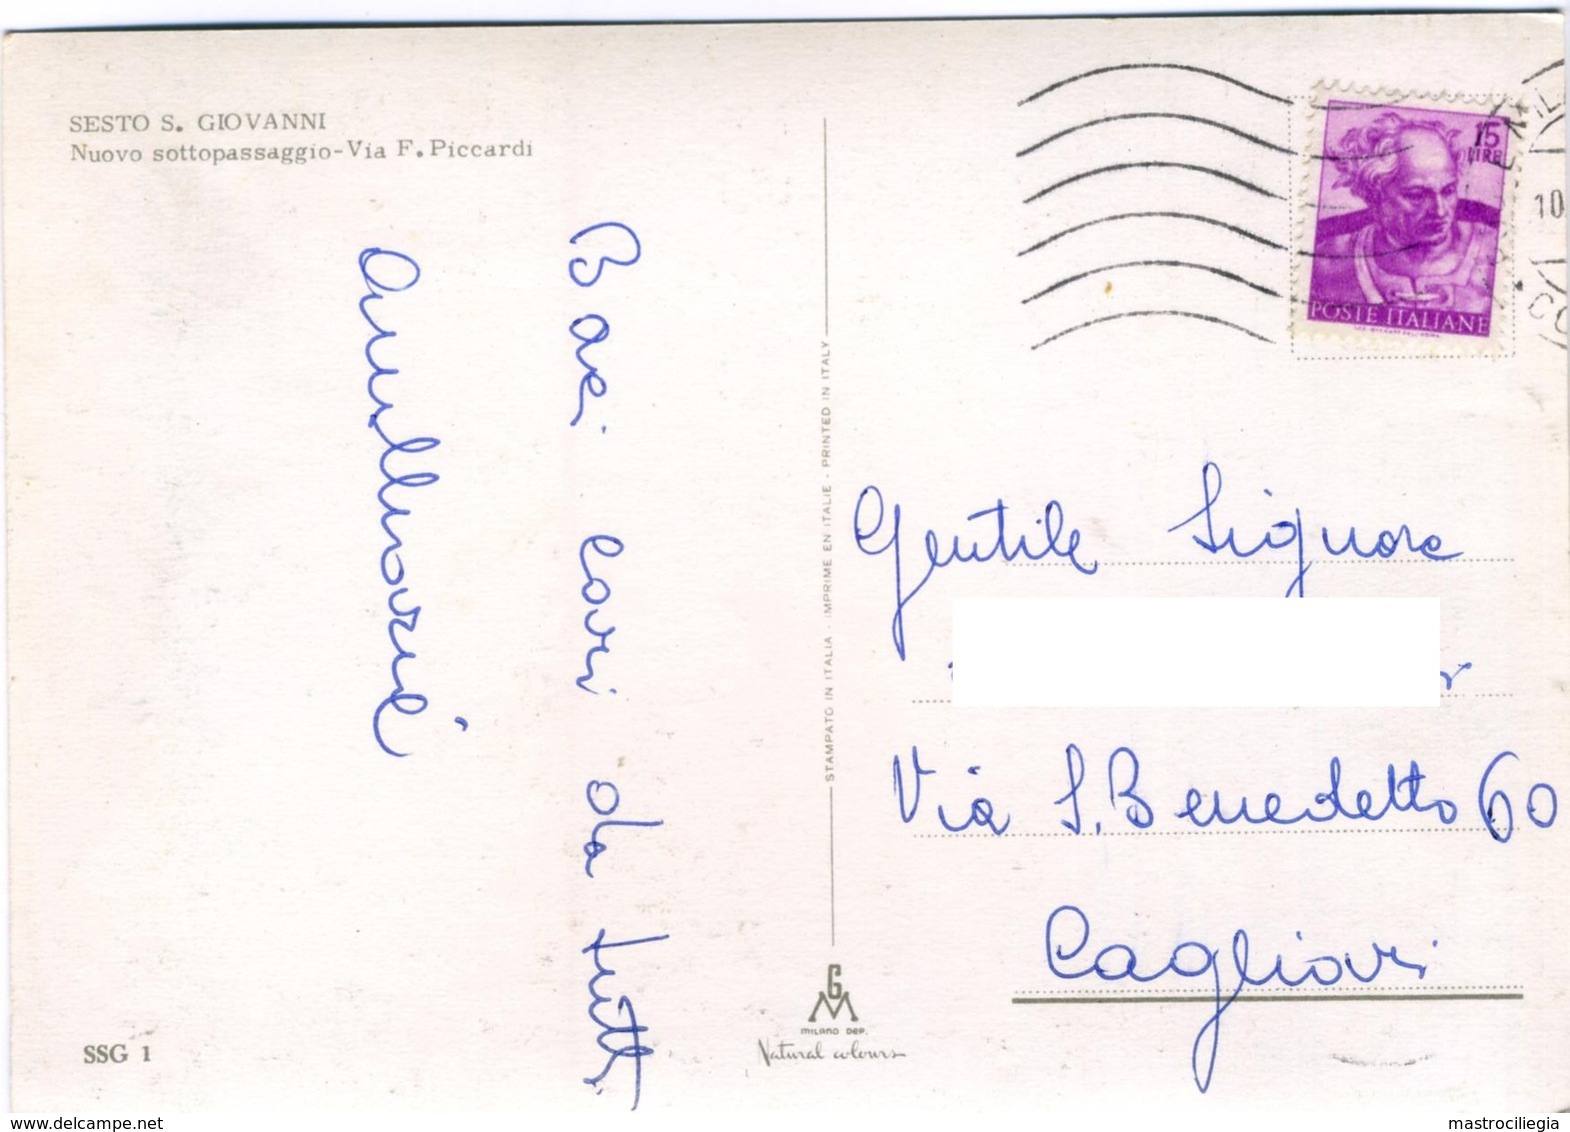 SESTO S. GIOVANNI
Nuovo sottopassaggio-Via F. Piccardi
Baci cari da tutti
15
LIRE
POSTE ITALIANE
10
STAMPATO IN ITALIA - IMPRIME EN ITALIE - PRINTED IN ITALY
Gentile Signora
Via S. Benedetto 60
Cagliari
GM
MILANO DEP.
Natural colours
SSG 1
www.delcampe.net
mastrociliegia